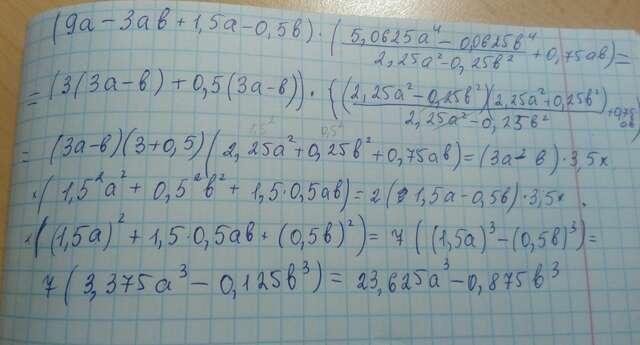 (9а − 3ав + 1,5а − 0,5в) · (5,0625а⁴ − 0,0625в⁴ / 2,25а² − 0,25в² + 0,75ав) =
= (3(3а − в) + 0,5(3а − в)) · {((2,25а² − 0,25в²)(2,25а² + 0,25в²) / 2,25а² − 0,25в² + 0,75ав)
= (3а − в)(3 + 0,5)(2,25а² + 0,25в² + 0,75ав) = (3а − в) · 3,5 ×
× (1,5²а² + 0,5²в² + 1,5 · 0,5ав) = 2(1,5а − 0,5в) · 3,5 ×
× ((1,5а)² + 1,5 · 0,5ав + (0,5в)²) = 7((1,5а)³ − (0,5в)³) =
7(3,375а³ − 0,125в³) = 23,625а³ − 0,875в³